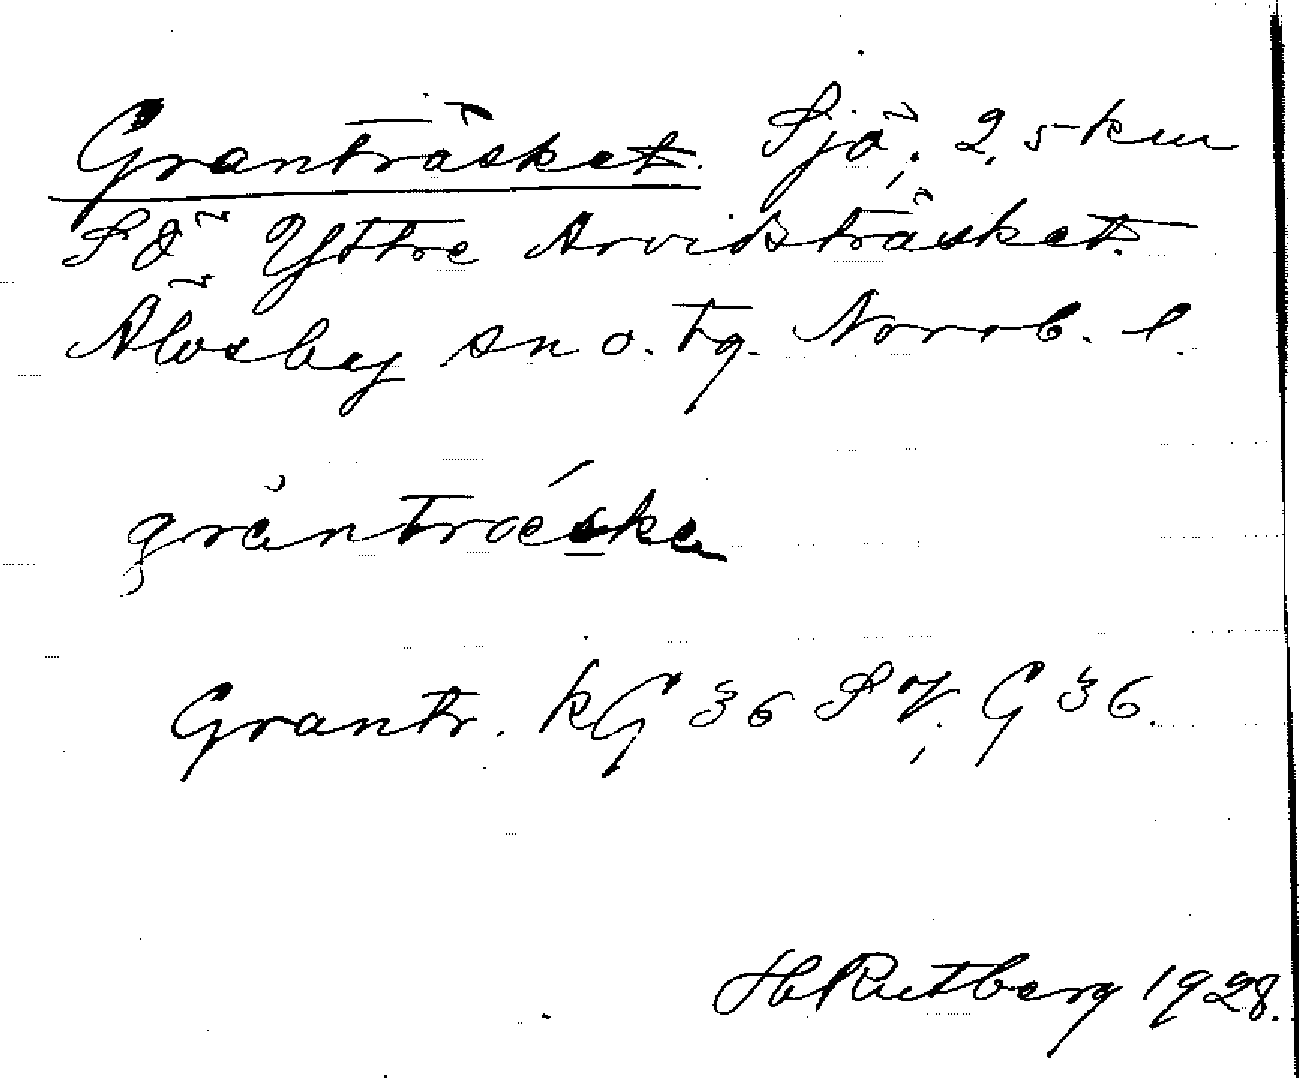 Granträsket. Sjö; 2,5 km
SÖ Yttre Arvidsträsket.
Älvsby sn o. tg. Norrb. l.
grăntrǽska
Grantr. kG 36 SV; G 36.
H Rutberg 1928.